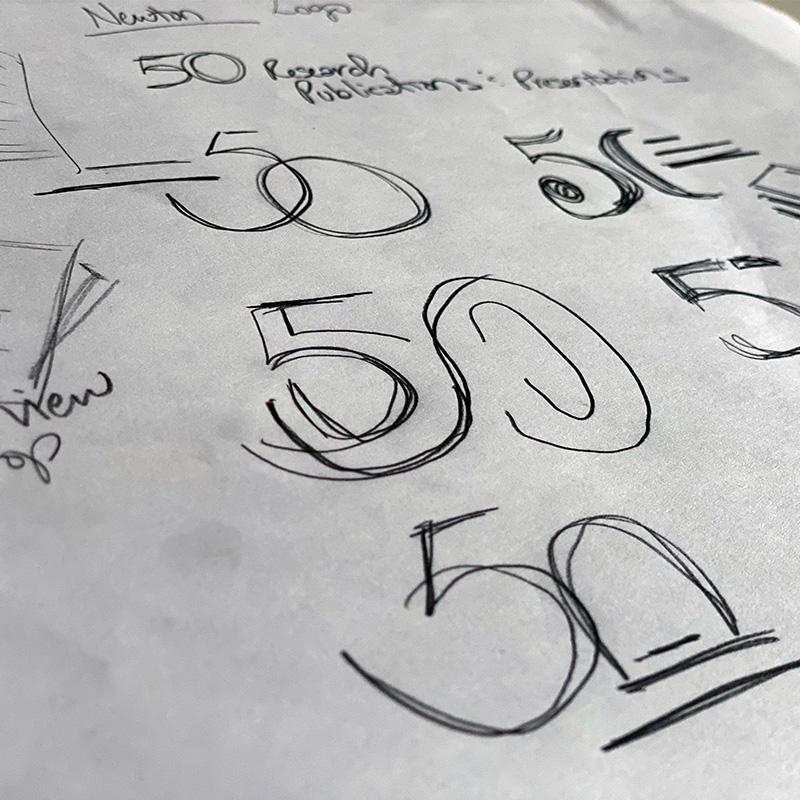 Newton Loop
50 Research
Publications: Presentations
50
50
50
5
view
op
50